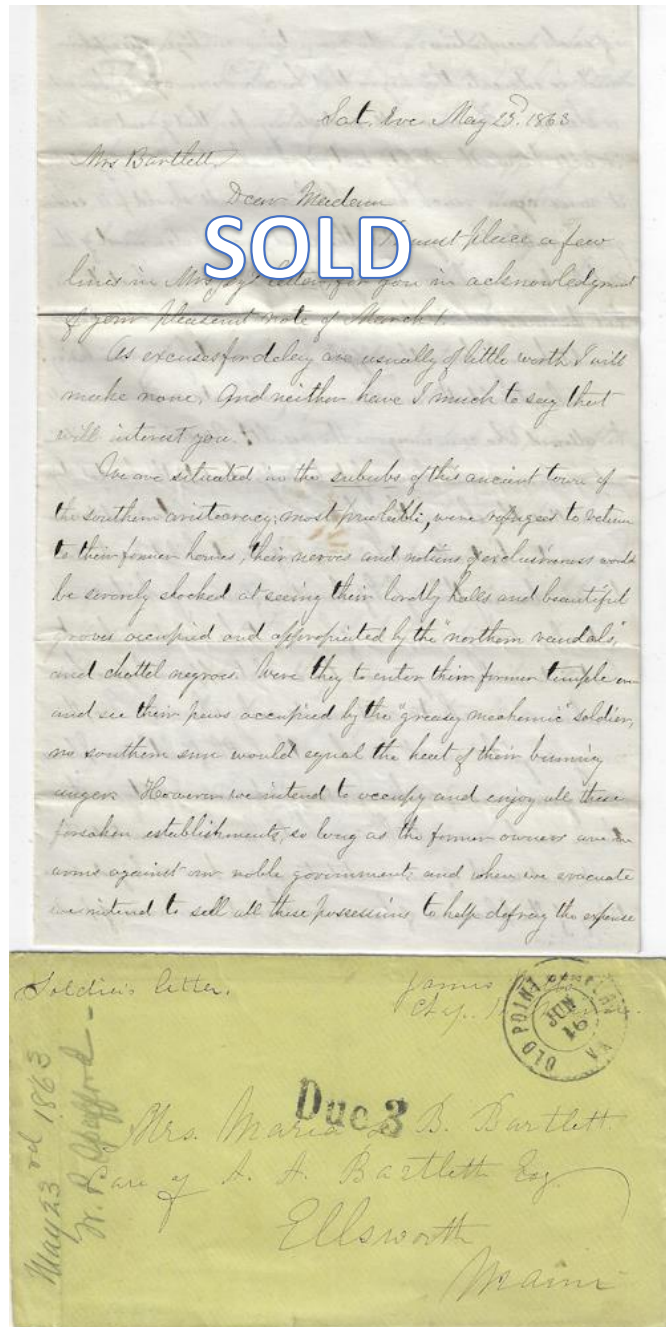 Sat. Eve May 23d. 1863
Mrs Bartlett
Dear Madam
SOLD
I must place a few
lines in Mrs letter for you in acknowledgment
of your pleasant note of March 1.
As excuses for delay are usually of little worth I will
make none. And neither have I much to say that
will interest you.
We are situated in the suburbs of this ancient town of
the southern aristocracy; most probably, were refugees to return
to their former homes, their nerves and notions of exclusiveness would
be severely shocked at seeing their lordly halls and beautiful
groves occupied and appropriated by the "northern vandals,"
and chattel negroes. Were they to enter their former temple
and see their pews occupied by the "greasy mechanic" soldier,
no southern sun would equal the heat of their burning
anger. However we intend to occupy and enjoy all these
forsaken establishments, so long as the former owners are in
arms against our noble government; and when we evacuate
we intend to sell all these possessions to help defray the expense
Soldier's letter.
James
Chap.
OLD POINT VA
16
Due 3
Mrs. Maria B. Bartlett
Care of A. A. Bartlett Esq.
Ellsworth
Maine
May 23rd 1863